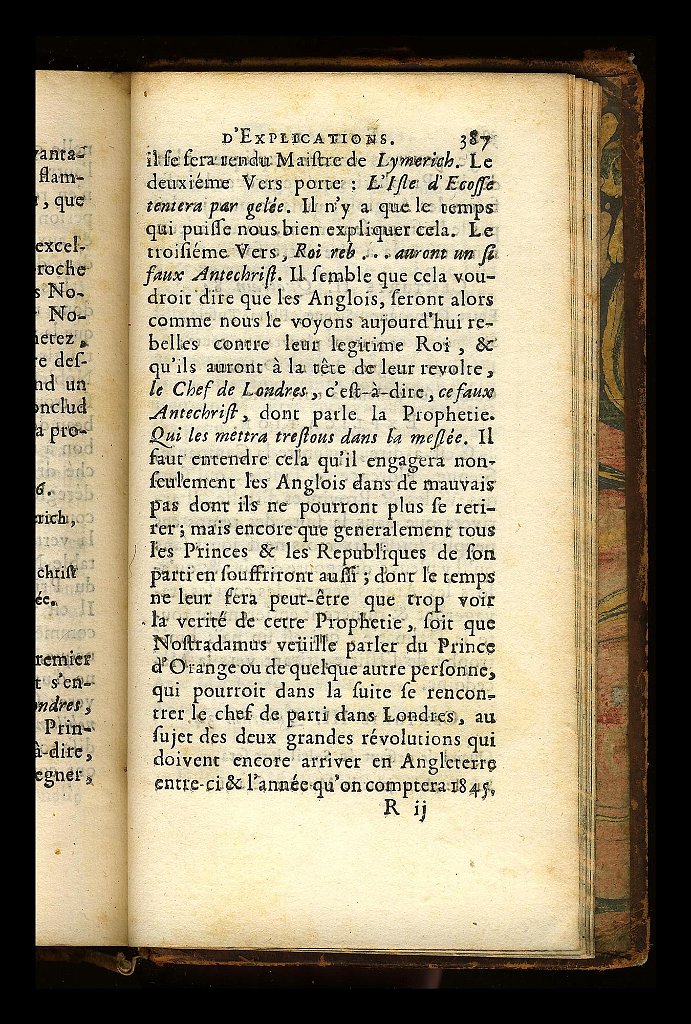 vanta-
flam-
, que
excel-
roche
s No-
No-
hetez,
re des-
nd un
onclud
a pro-
6.
erich,
christ
ée.
remier
t s'en-
ondres,
Prin-
à-dire,
egner,
D'EXPLICATIONS. 387
il ſe ſera rendu Maiſtre de Lymerich. Le
deuxiéme Vers porte : L'Iſle d'Ecoſſe
teniera par gelée. Il n'y a que le temps
qui puiſſe nous bien expliquer cela. Le
troiſiéme Vers, Roi reb ... auront un ſi
faux Antechriſt. Il ſemble que cela vou-
droit dire que les Anglois, ſeront alors
comme nous le voyons aujourd'hui re-
belles contre leur legitime Roi, &
qu'ils auront à la tête de leur revolte,
le Chef de Londres, c'eſt-à-dire, ce faux
Antechriſt, dont parle la Prophetie.
Qui les mettra treſtous dans la meſlée. Il
faut entendre cela qu'il engagera non-
ſeulement les Anglois dans de mauvais
pas dont ils ne pourront plus ſe reti-
rer ; mais encore que generalement tous
les Princes & les Republiques de ſon
parti en ſouffriront auſſi ; dont le temps
ne leur fera peut-être que trop voir
la verité de cette Prophetie, ſoit que
Noſtradamus veüille parler du Prince
d'Orange ou de quelque autre perſonne,
qui pourroit dans la ſuite ſe rencon-
trer le chef de parti dans Londres, au
ſujet des deux grandes révolutions qui
doivent encore arriver en Angleterre
entre-ci & l'année qu'on comptera 1845.
R ij